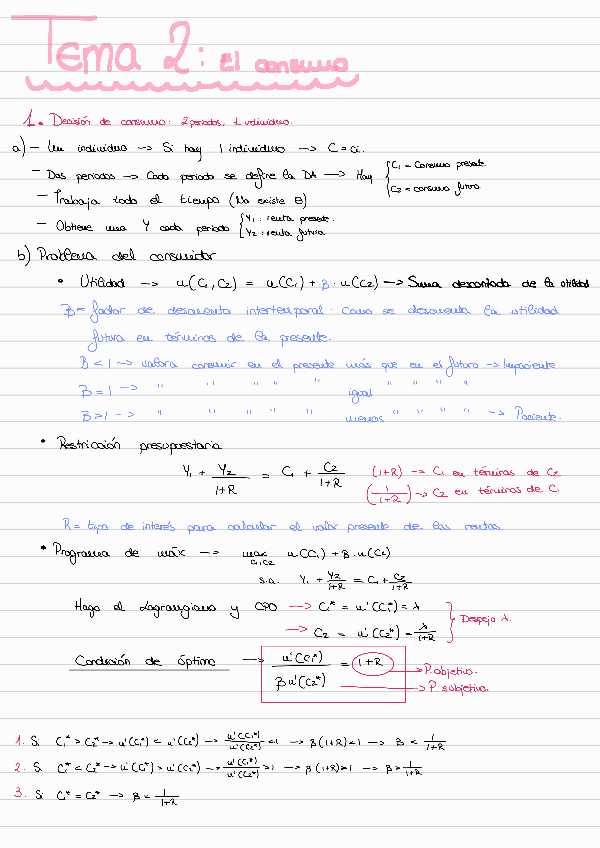 Tema 2: El consumo
1. Decisión de consumo: 2 periodos, 1 individuo.
a) - Un individuo → Si hay 1 individuo → C = ci.
- Dos periodos → Cada periodo se define la DA → Hay { C1 = Consumo presente. C2 = consumo futuro
- Trabaja todo el tiempo (No existe B)
- Obtiene una Y cada periodo { Y1: renta presente. Y2: renta futura
b) Problema del consumidor
• Utilidad → u(C1, C2) = u(C1) + β · u(C2) → Suma descontada de la utilidad
β = factor de descuento intertemporal. Como se descuenta la utilidad
futura en términos de la presente.
β < 1 → valora consumir en el presente más que en el futuro → Impaciente
β = 1 → " " " " " igual " " " "
β > 1 → " " " " " menos " " " " → Paciente.
• Restricción presupuestaria
Y1 + Y2/(1+R) = C1 + C2/(1+R) (1+R) → C1 en términos de C2
(1/(1+R)) → C2 en términos de C1
R = tipo de interés para calcular el valor presente de las rentas.
• Programa de máx → max C1,C2 u(C1) + β · u(C2)
s.a. Y1 + Y2/(1+R) = C1 + C2/(1+R)
Hago el Lagrangiano y CPO → C1* = u'(C1*) = λ
→ C2 = u'(C2*) = λ/(1+R) } Despejo λ.
Condición de óptimo → u'(C1*)/βu'(C2*) = 1+R → P. objetivo.
→ P. subjetivo.
1. Si C1* > C2* → u'(C1*) < u'(C2*) → u'(C1*)/u'(C2*) < 1 → β(1+R) < 1 → β < 1/(1+R)
2. Si C1* < C2* → u'(C1*) > u'(C2*) → u'(C1*)/u'(C2*) > 1 → β(1+R) > 1 → β > 1/(1+R)
3. Si C1* = C2* → β = 1/(1+R)